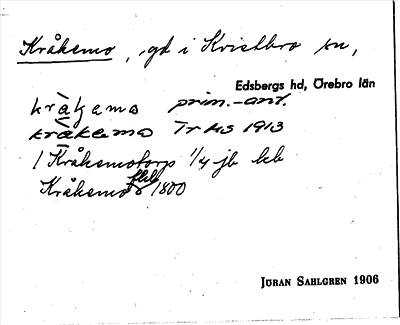 Kråksmo, gd i Kvistbro sn,
Edsbergs hd, Örebro län
kràḱsmo prim.-ant.
kråksmo Tr HS 1913
/ Kråksmotorp 1/4 jb
Kråksmo 1800
JÖRAN SAHLGREN 1906